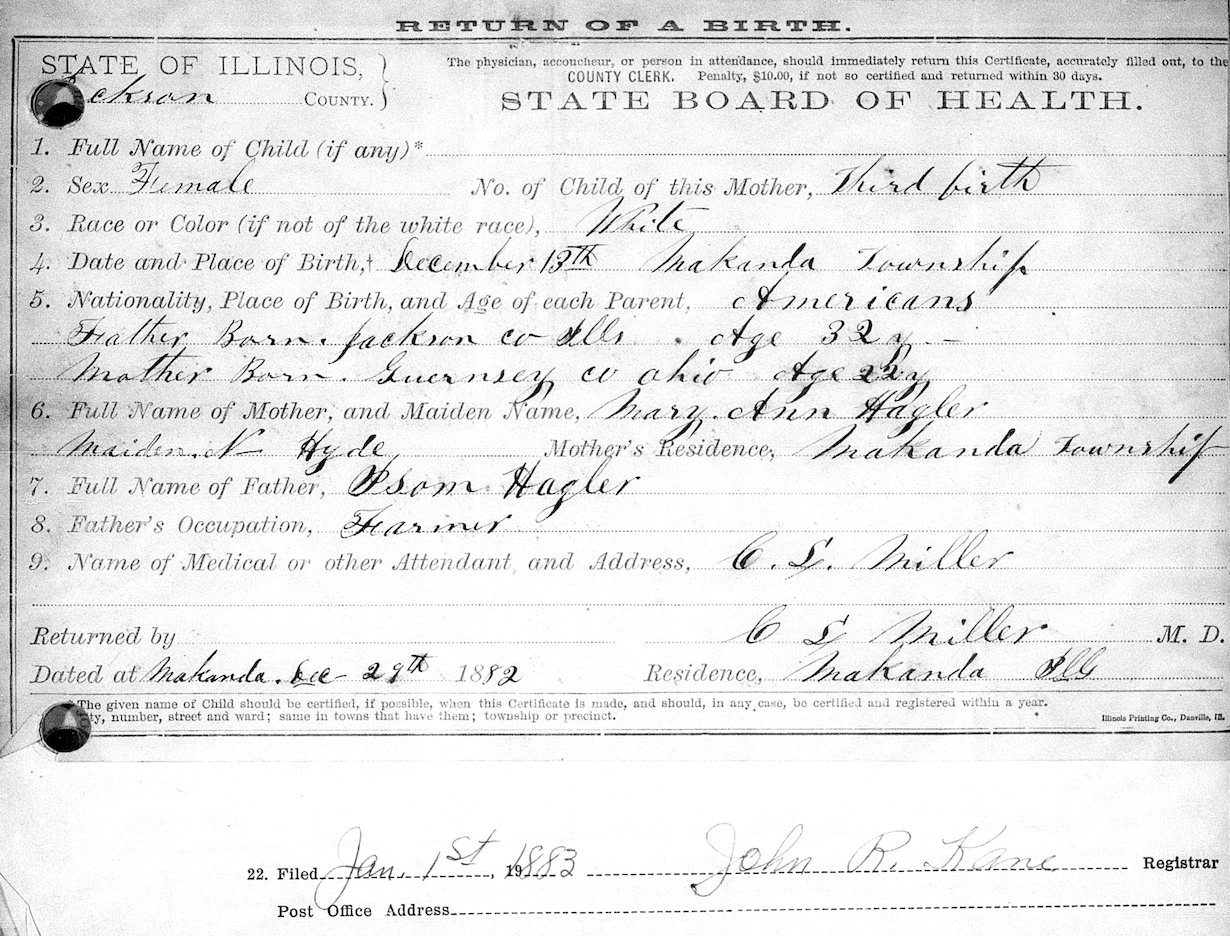 RETURN OF A BIRTH.
STATE OF ILLINOIS,
ckson COUNTY.
The physician, accoucheur, or person in attendance, should immediately return this Certificate, accurately filled out, to the
COUNTY CLERK. Penalty, $10.00, if not so certified and returned within 30 days.
STATE BOARD OF HEALTH.
1. Full Name of Child (if any)*
2. Sex Female No. of Child of this Mother, Third birth
3. Race or Color (if not of the white race), White
4. Date and Place of Birth,† December 13th Makanda Township
5. Nationality, Place of Birth, and Age of each Parent, Americans
Father Born. Jackson co Ills. Age 32 y —
Mother Born. Guernsey co ohio Age y
6. Full Name of Mother, and Maiden Name, Mary. Ann Hagler
Maiden. N— Hyde Mother's Residence, Makanda Township
7. Full Name of Father, Isom Hagler
8. Father's Occupation, Farmer
9. Name of Medical or other Attendant, and Address, C. L. Miller
Returned by C L Miller M. D.
Dated at Makanda. Dec— 29th 1882 Residence, Makanda Ills
The given name of Child should be certified, if possible, when this Certificate is made, and should, in any case, be certified and registered within a year.
ty, number, street and ward; same in towns that have them; township or precinct.
Illinois Printing Co., Danville, Ill.
22. Filed Jan. 1st, 1883 John R. Kane Registrar
Post Office Address